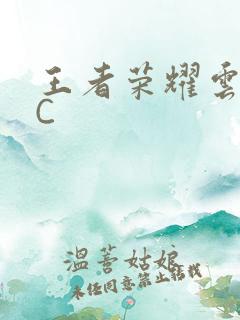 王者荣耀雲
C
溫蓍姑娘
未经同意禁止转载